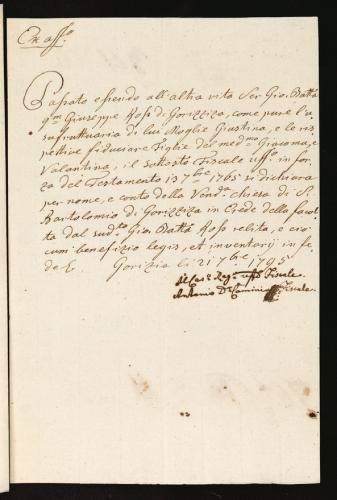 Ex offo.
Passato essendo all'altra vita Ser Gio. Batta
qm Giuseppe Rossi di Gorizziza, come pure l'u-
sufruttuaria di lui Moglie Giustina, e le ris-
pettive fiduciarie Figlie del medmo Giacoma, e
Valantina; il sottosto Fiscale uffo in for-
za del Testamento 13 7bre 1765 si dichiara
per nome, e conto della Vnda chiesa di S.
Bartolomio di Gorizziza in Erede della facol-
tà dal sudto Gio. Batta Ross relita, e ciò
cum benefizio legis, et inventarij in fe-
de &. Gorizia li 21 7bre 1795
Reg. uffo Fiscale.
Antonio de Fiscale.